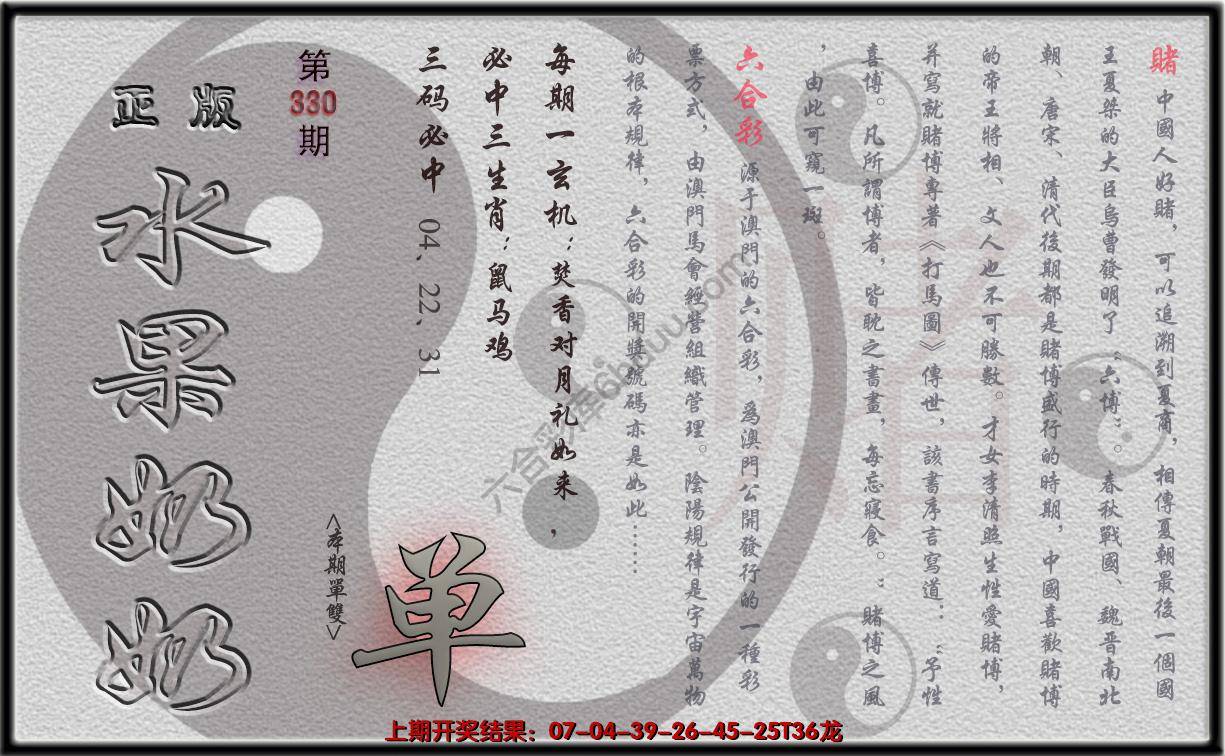 賭 中國人好賭，可以追溯到夏商，相傳夏朝最後一個國
王夏桀的大臣烏曹發明了“六博”。春秋戰國、魏晋南北
朝、唐宋、清代後期都是賭博盛行的時期，中國喜歡賭博
的帝王將相、文人也不可勝數。才女李清照生性愛賭博，
并寫就賭博專著《打馬圖》傳世，該書序言寫道：“予性
喜博。凡所謂博者，皆耽之書畫，每忘寢食。”賭博之風
，由此可窺一斑。
六合彩 源于澳門的六合彩，爲澳門公開發行的一種彩
票方式，由澳門馬會經營組織管理。陰陽規律是宇宙萬物
的根本規律，六合彩的開獎號碼亦是如此……
每期一玄机：焚香对月礼如来，
必中三生肖：鼠马鸡
三码必中 04、22、31
第330期
正版
水果奶奶
<本期單雙>
单
上期开奖结果：07-04-39-26-45-25T36龙